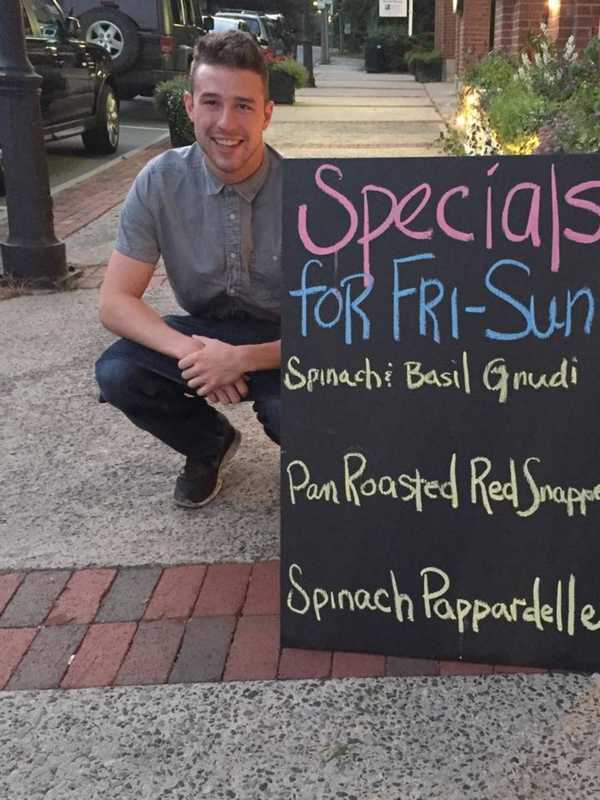 Specials
for Fri-Sun
Spinach & Basil Gnudi
Pan Roasted Red Snappe
Spinach Pappardelle